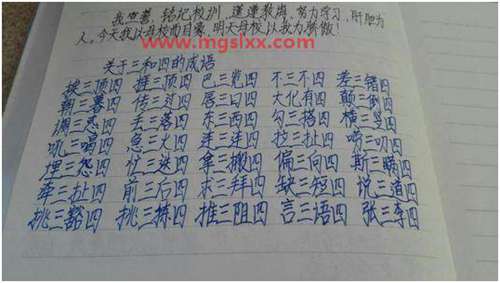 我宣誓，铭记校训，遵遵教诲，努力学习，肝胆为
人。今天我以母校而自豪，明天母校以我为骄傲！
www.mgslxx.com
关于三和四的成语
挨三顶四 捱三顶四 巴三览四 不三不四 差三错四
朝三暮四 传三过四 唇三口四 大化有四 颠三倒四
调三惑四 丢三落四 东三西四 勾三搭四 横三竖四
吆三喝四 急三火四 连三连四 拉三扯四 唠三叨四
埋三怨四 忙三迭四 拿三搬四 偏三向四 斯三瞒四
牵三扯四 前三后四 求三拜四 缺三短四 说三道四
挑三豁四 挑三拣四 推三阻四 言三语四 张三李四